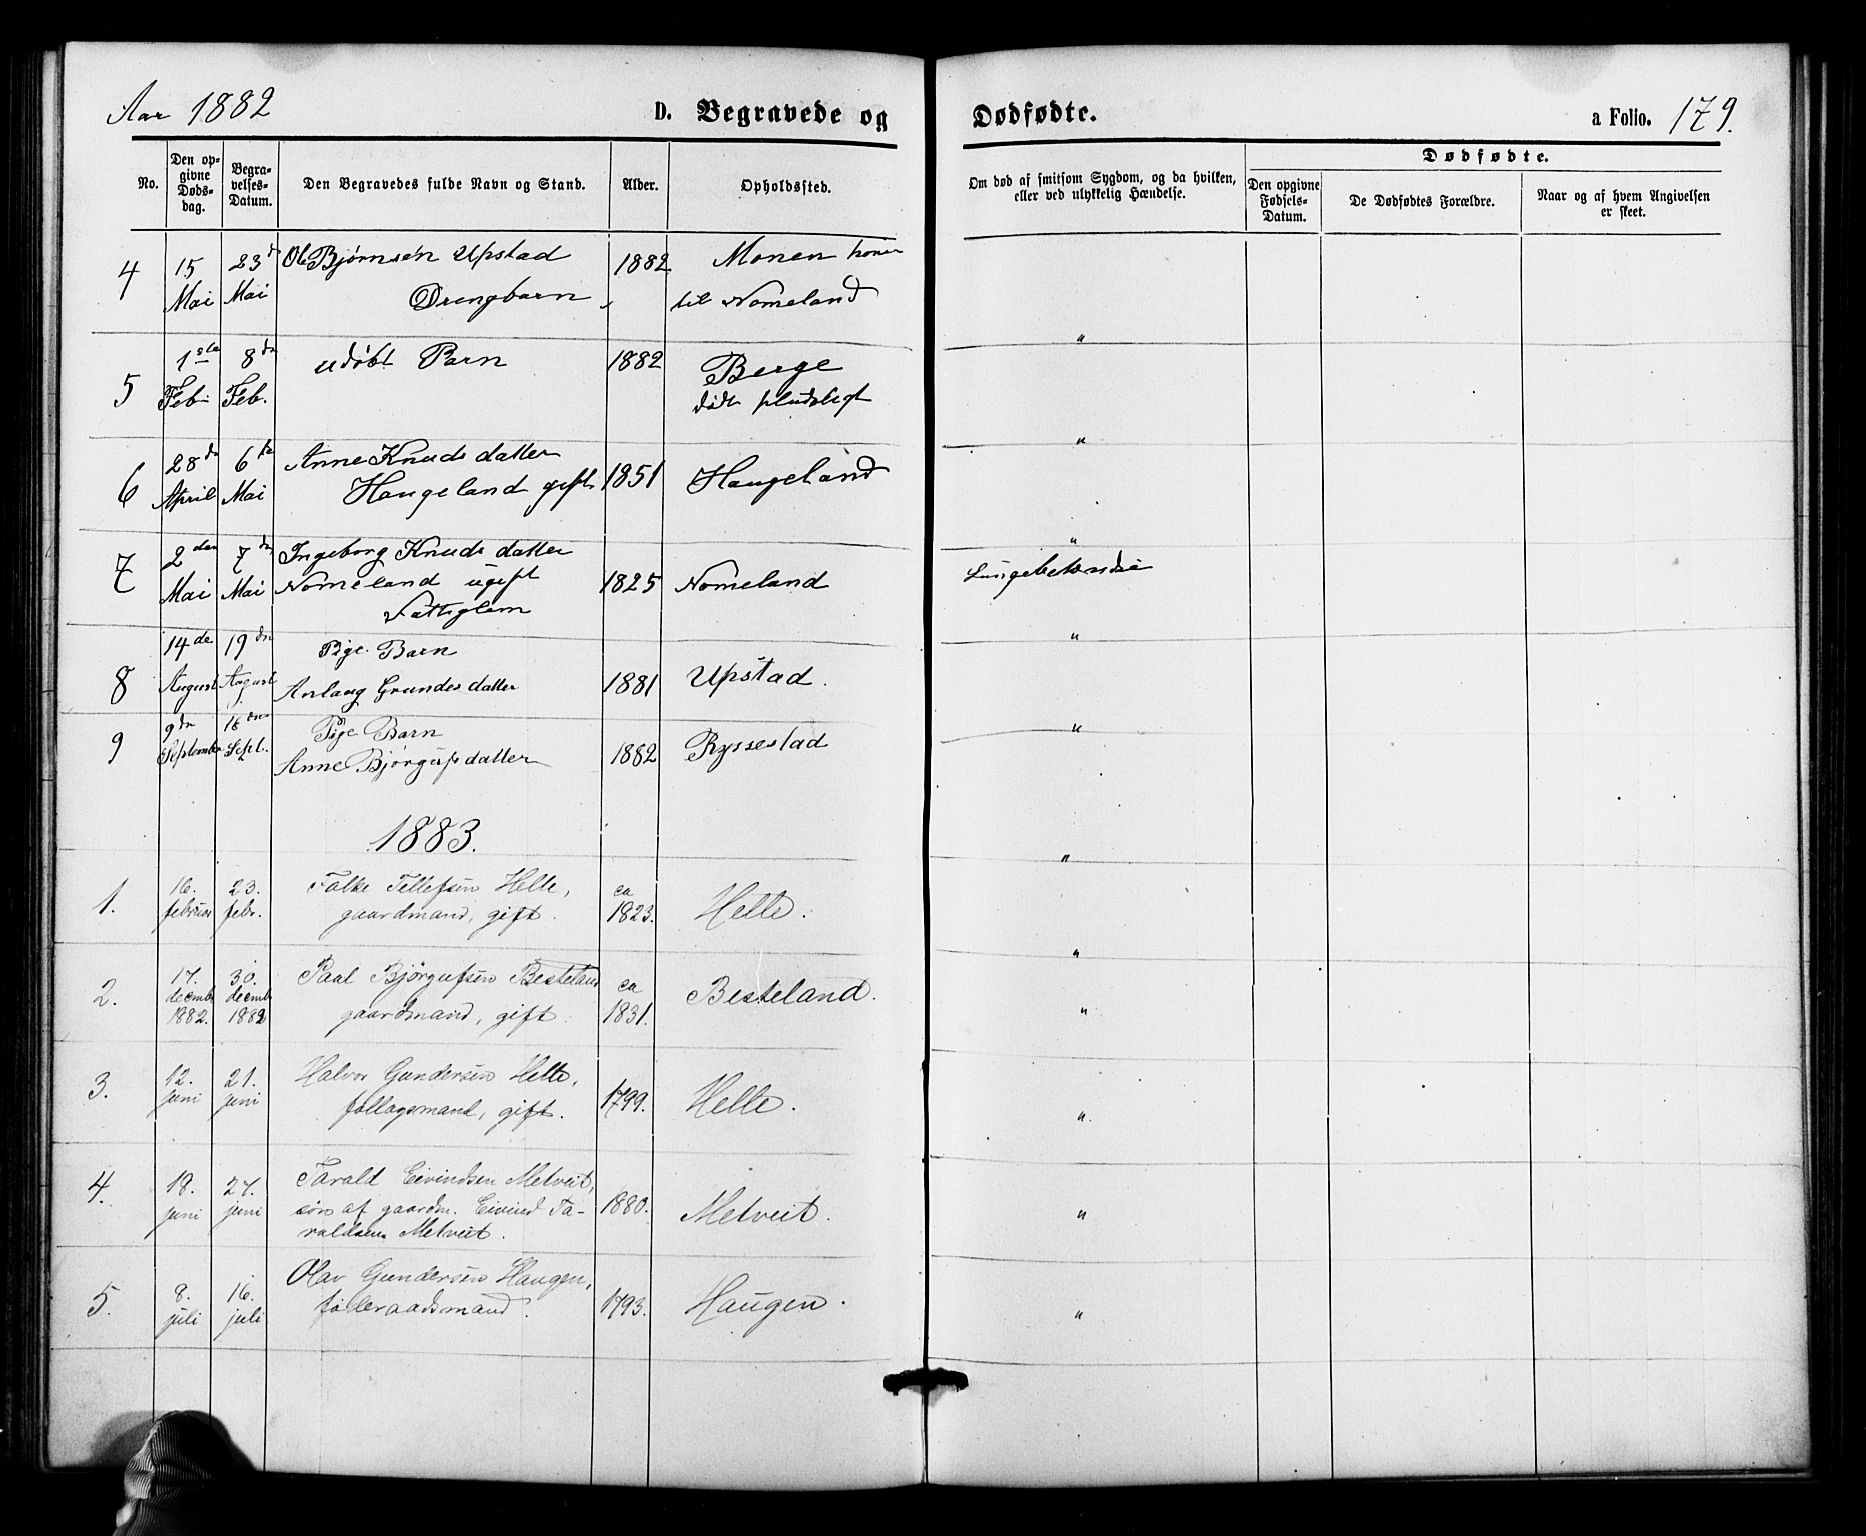 Aar 1882
D. Begravede og
Dødfødte.
a Folio. 179.
No.
Den op-
givne
Døds-
dag.
Begra-
velses-
Datum.
Den Begravedes fulde Navn og Stand.
Alder.
Opholdssted.
Om død af smitsom Sygdom, og da hvilken,
eller ved ulykkelig Hændelse.
Dødfødte.
Den opgivne
Fødsels-
Datum.
De Dødfødtes Forældre.
Naar og af hvem Angivelsen
er skeet.
4 15 23d Ole Bjørnsen Upstad 1882 Monen
Mai Mai Drengbarn til Nomeland
"
5 1ste 8de udøbt Barn 1882 Berge
Feb. Feb. døde pludsligt
"
6 28de 6te Anne Knudsdatter 1851 Haugeland
April Mai Haugeland gift
"
7 2den 7de Ingeborg Knudsdatter
Mai Mai Nomeland ugift 1825 Nomeland Lungebetændelse
Fattiglem
"
8 14de 19de Pige Barn
August August Aslaug Gundersdatter 1881 Upstad.
"
9 9de 16de Pige Barn
September Sept. Anne Bjørgufsdatter 1882 Ryssestad
1883.
"
1. 16. 23. Folke Tellefsen Helle, ca
februar febr. gaardmand, gift. 1823. Helle.
"
2. 17. 30. Paal Bjørgufsen Besteland ca
decembr decembr gaardmand, gift. 1831. Besteland.
1882. 1882
"
3. 12. 21. Halvor Gundersen Helle,
juni juni follagsmand, gift. 1799. Helle.
"
4. 18. 27. Tarald Eivindsen Metveit,
juni juni søn af gaardm. Eivind Ta- 1880. Metveit.
raldsen Metveit.
"
5. 8. 16. Olav Gundersen Haugen,
juli juli føderaadsmand. 1793. Haugen.
"